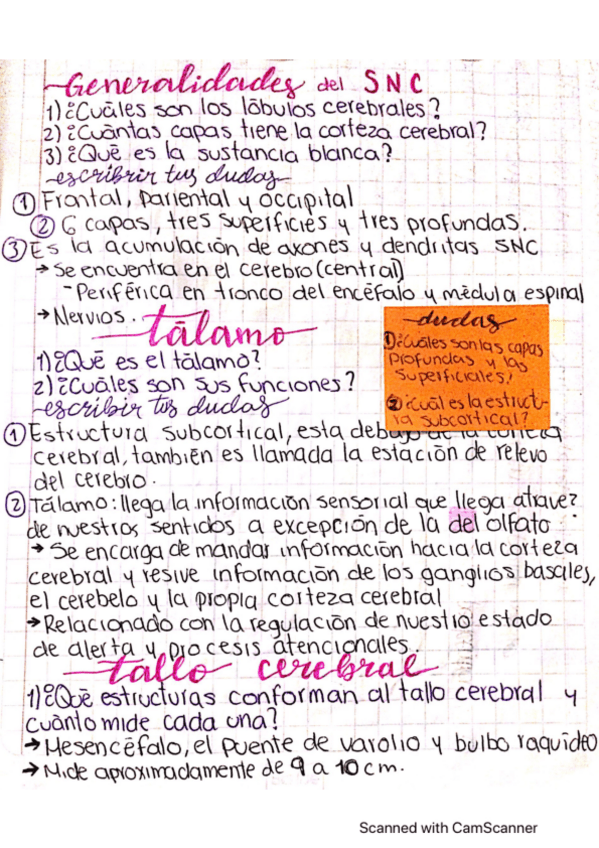 Generalidades del SNC
1) ¿Cuáles son los lóbulos cerebrales?
2) ¿Cuántas capas tiene la corteza cerebral?
3) ¿Qué es la sustancia blanca?
escribrir tus dudas
① Frontal, pariental y occipital
② 6 capas, tres superficies y tres profundas.
③ Es la acumulación de axones y dendritas SNC
→ Se encuentra en el cerebro (central)
- Periférica en tronco del encéfalo y médula espinal
→ Nervios.
tálamo
1) ¿Qué es el tálamo?
2) ¿Cuáles son sus funciones?
escribir tus dudas
dudas
① ¿Cuáles son las capas
profundas y las
superficiales?
② ¿Cuál es la estruct-
ra subcortical?
① Estructura subcortical, esta debajo de la corteza
cerebral, también es llamada la estación de relevo
del cerebro.
② Tálamo: llega la información sensorial que llega atrave?
de nuestros sentidos a excepción de la del olfato
→ Se encarga de mandar información hacia la corteza
cerebral y resive información de los ganglios basales,
el cerebelo y la propia corteza cerebral
→ Relacionado con la regulación de nuestro estado
de alerta y procesis atencionales.
tallo cerebral
1) ¿Qué estructuras conforman al tallo cerebral y
cuánto mide cada una?
→ Mesencéfalo, el puente de varolio y bulbo raquideo
→ Mide aproximadamente de 9 a 10 cm.
Scanned with CamScanner